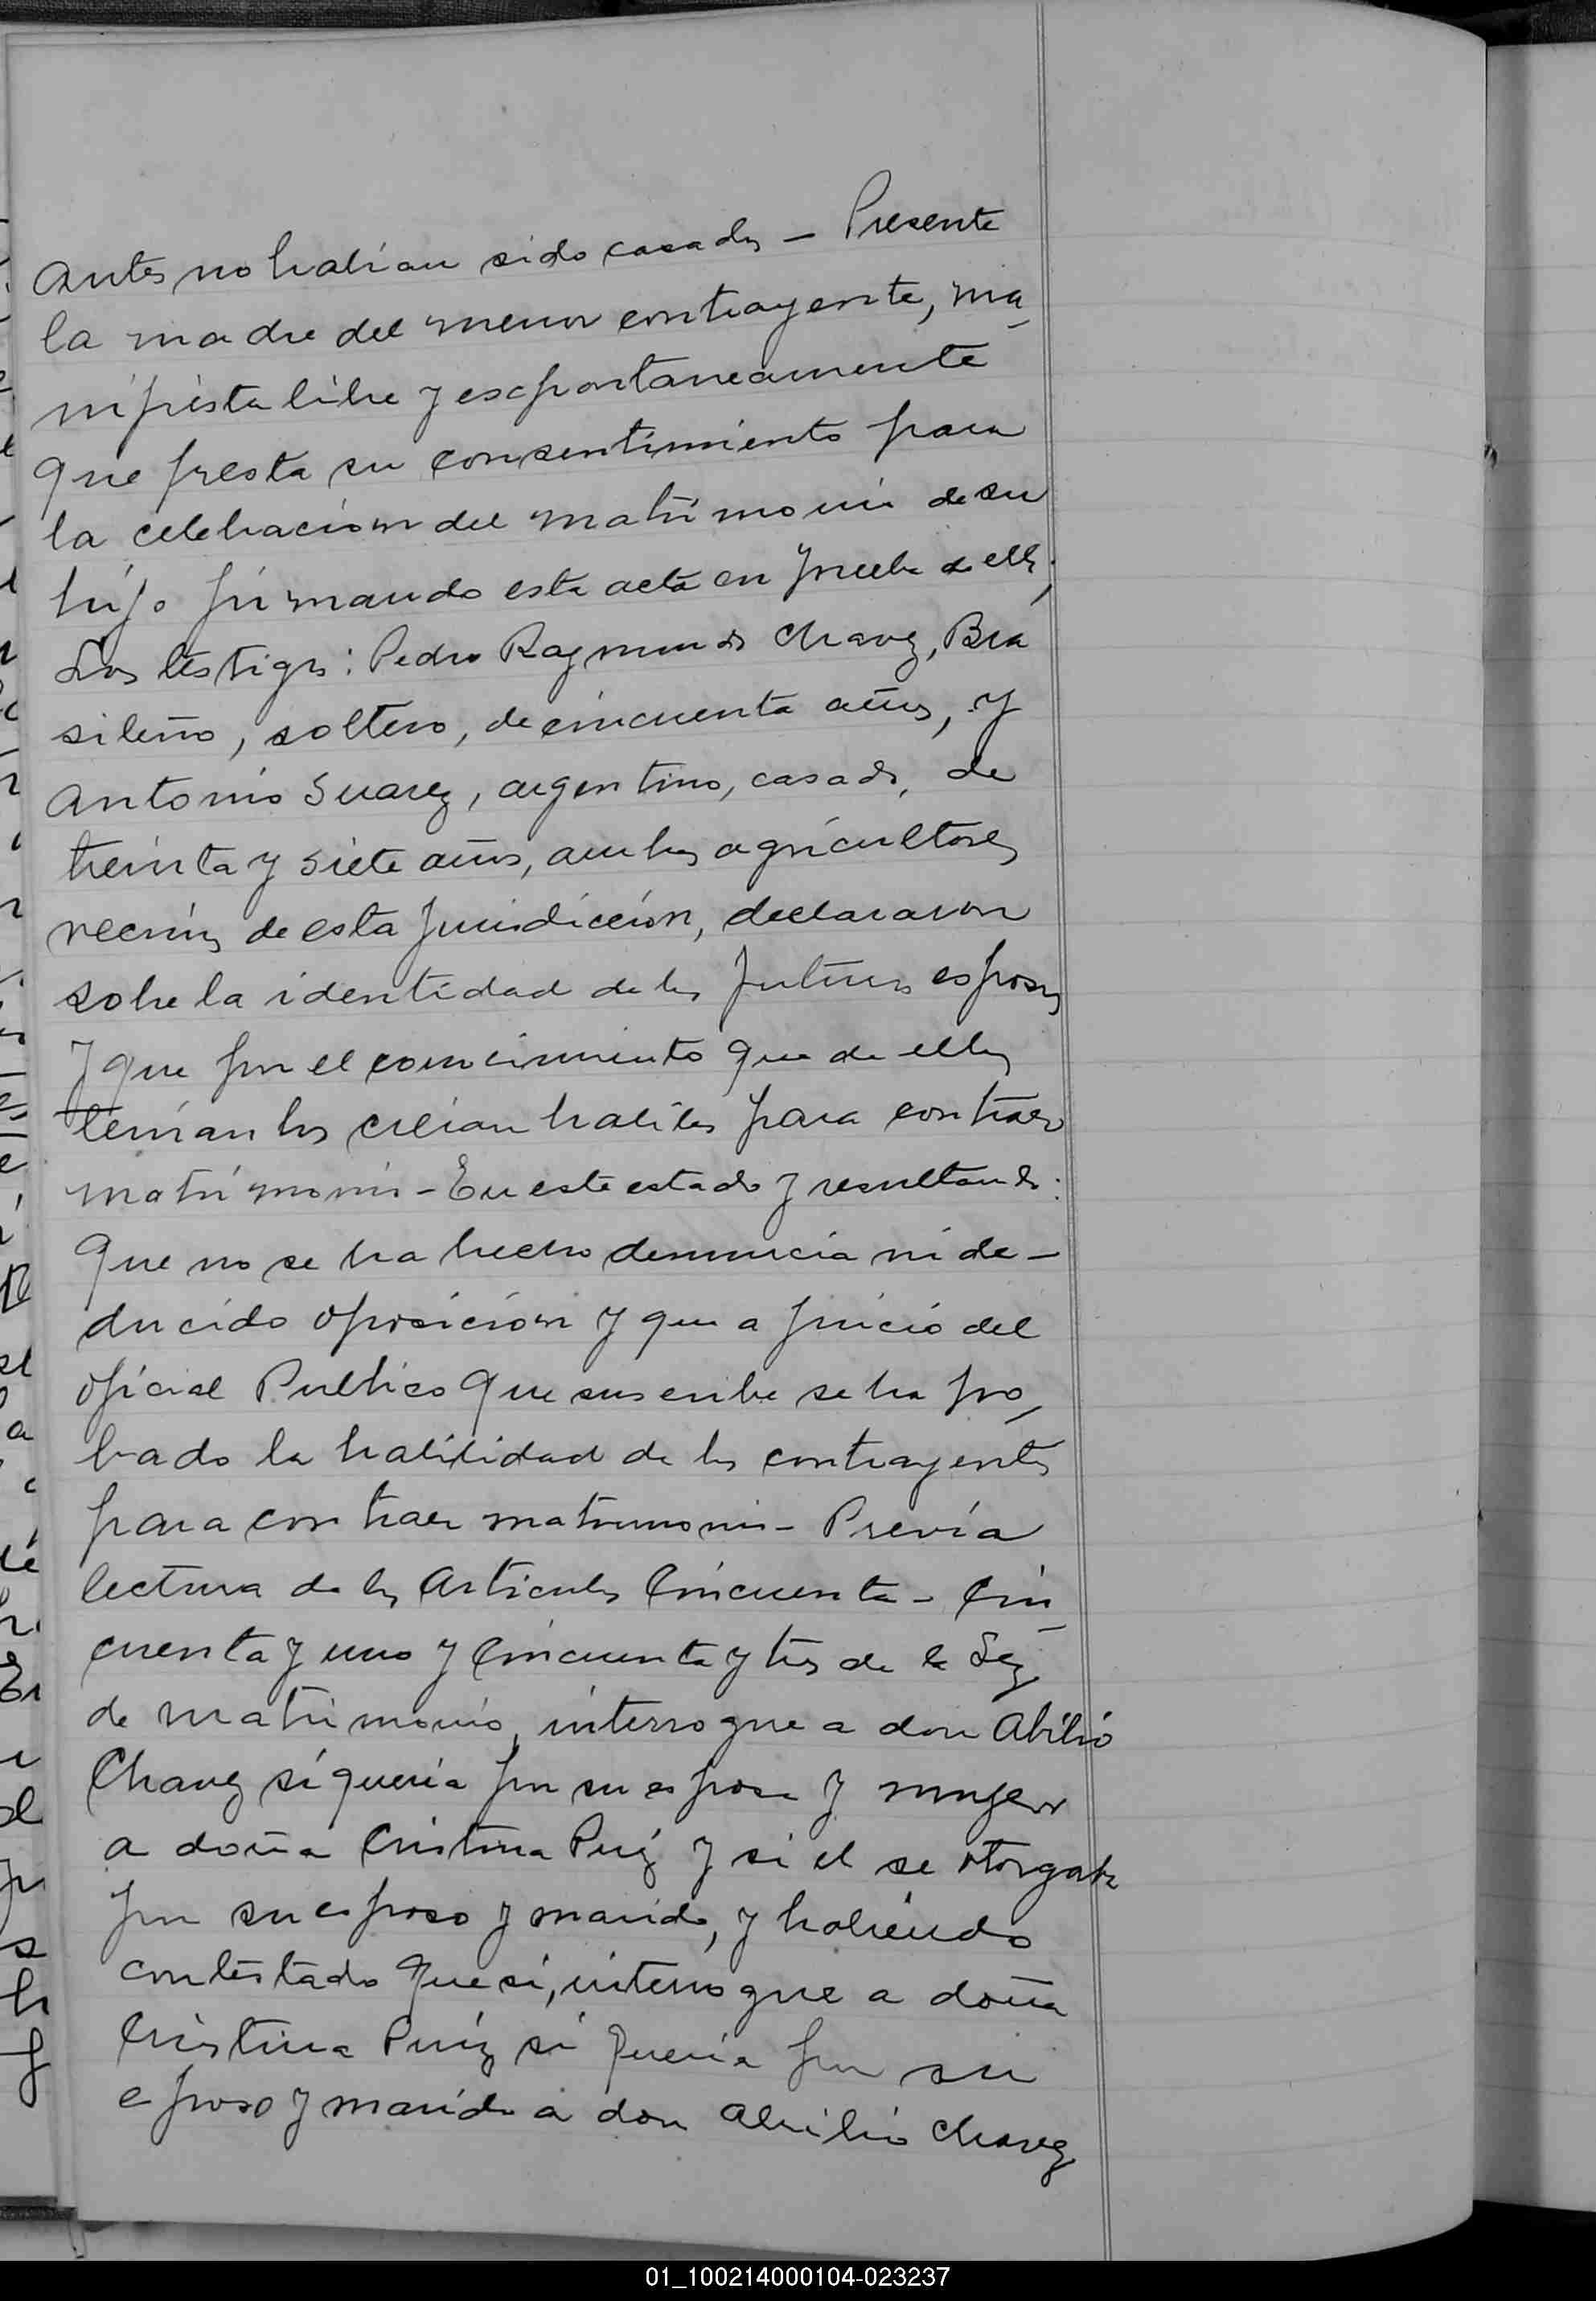 antes no habian sido casados – Presente
la madre del menor contrayente, ma-
nifiesta libre y esxpontaneamente
que presta su consentimiento para
la celebracion del matrimonio de su
hijo firmando esta acta en prueba de ello;
Los testigos: Pedro Raymundo Chavez, Bra
sileño, soltero, de cincuenta años, y
Antonio Suarez, argentino, casado, de
treinta y siete años, ambos agricultores
vecinos de esta Jurisdicción, declararon
sobre la identidad de los futuros esposos
y que por el conocimiento que de ellos
tenian los creian habiles para contraer
matrimonio – En este estado y resultando:
Que no se ha hecho denuncia ni de-
ducido oposición y que a juicio del
oficial Publico que suscribe se ha pro-
bado la habilidad de los contrayentes
para contraer matrimonio – Previa
lectura de los articulos Cincuenta – Cin-
cuenta y uno y Cincuenta y tres de la Ley
de matrimonio, interrogue a don Abilio
Chavez si queria por su esposa y mujer
a doña Cristina Puiz y si el se otorgaba
por su esposo y marido, y habiendo
contestado que si, interrogue a doña
Cristina Puiz si queria por su
esposo y marido a don Abilio Chavez
01_100214000104-023237